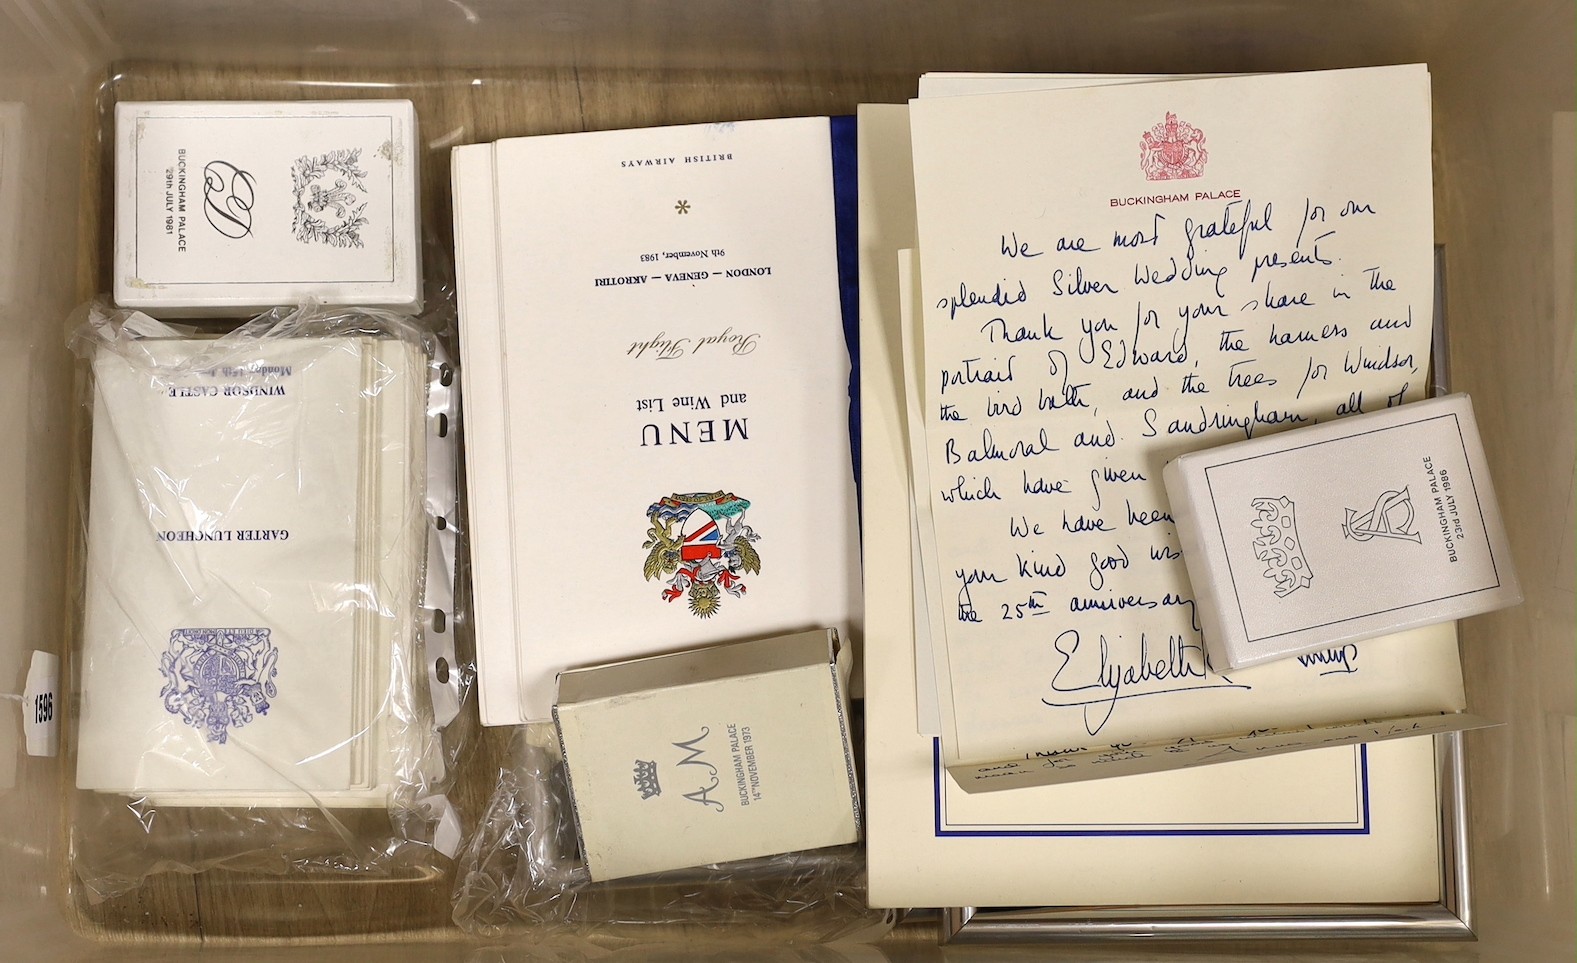 BUCKINGHAM PALACE
29th JULY 1981
CD
WINDSOR CASTLE
GARTER LUNCHEON
1596
BRITISH AIRWAYS
9th November, 1983
LONDON — GENEVA — AKROTIRI
Royal Flight
MENU
and Wine List
AM
BUCKINGHAM PALACE
14TH NOVEMBER 1973
BUCKINGHAM PALACE
We are most grateful for our
splendid Silver Wedding presents.
Thank you for your share in the
portrait of Edward, the harness and
the bird bath, and the trees for Windsor,
Balmoral and Sandringham, all of
which have given
We have been
your kind good
the 25th anniversary
Elizabeth R
AS
BUCKINGHAM PALACE
23rd JULY 1986